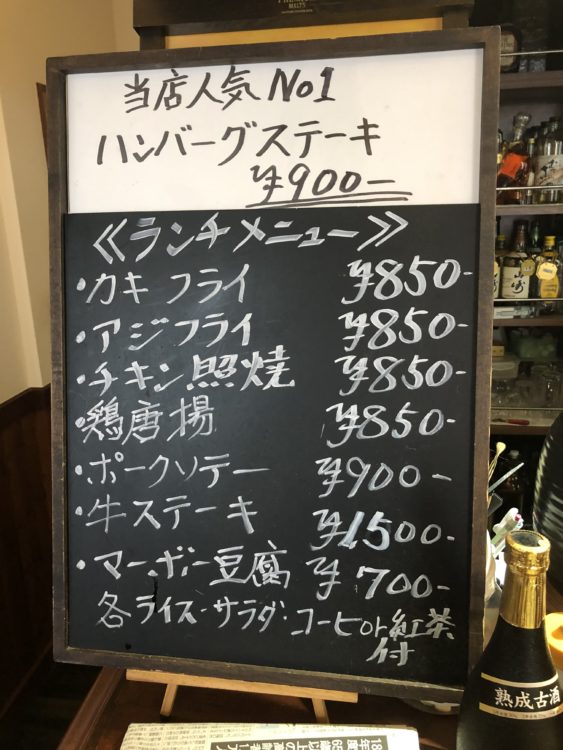 当店人気No1
ハンバーグステーキ
¥900-
≪ランチメニュー≫
・カキフライ ¥850-
・アジフライ ¥850-
・チキン照焼 ¥850-
・鶏唐揚 ¥850-
・ポークソテー ¥900-
・牛ステーキ ¥1,500-
・マーボー豆腐 ¥700-
各ライス・サラダ・コーヒor紅茶
付
熟成古酒